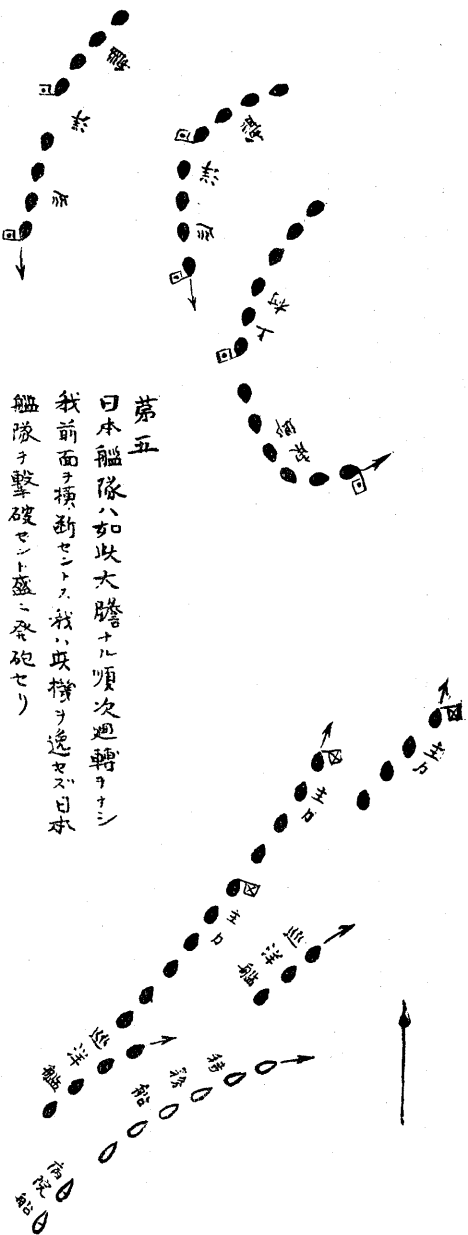 第五
日本艦隊ハ如此大膽ナル順次廻轉ヲナシ
我前面ヲ横断セントス我ハ此機ヲ逸セズ日本
艦隊ヲ撃破セント盛ニ発砲セリ
巡洋艦
巡洋艦
上村
主力
主力
主力
巡洋艦
巡洋艦
特務船
病院船